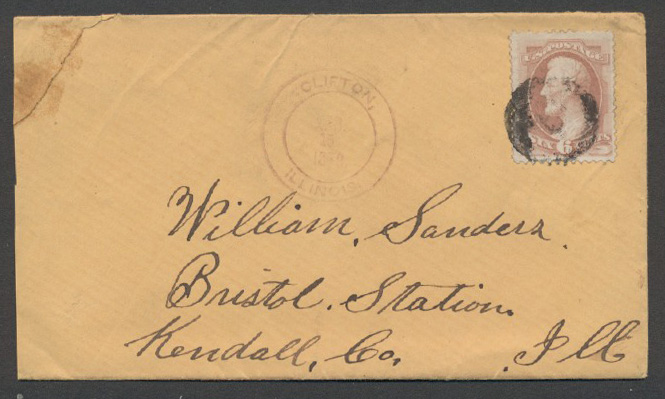 U.S. POSTAGE
CLIFTON,
ILLINOIS
SIX 6 CENTS
William, Sanders.
Bristol. Station.
Kendall, Co. Ill